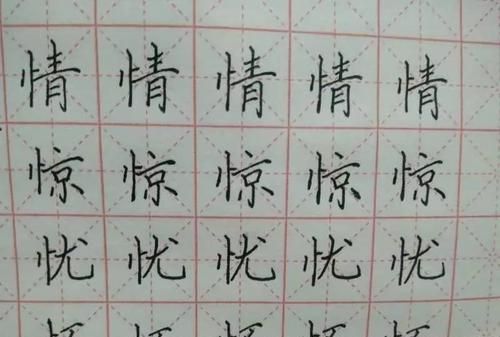 情情情情情
惊惊惊惊惊
忧忧忧忧忧